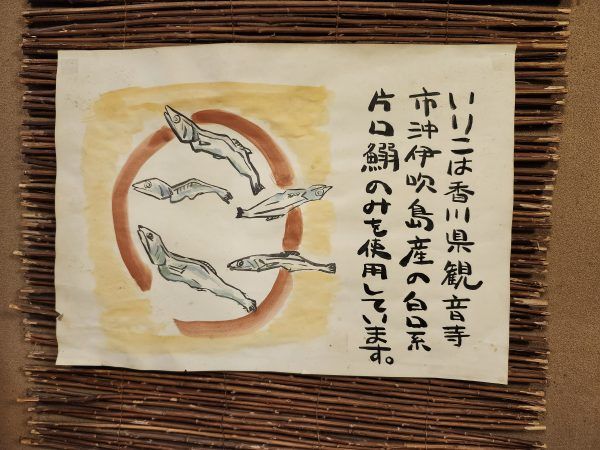 いりこは香川県観音寺
市沖伊吹島産の白口系
片口鰯のみを使用しています。